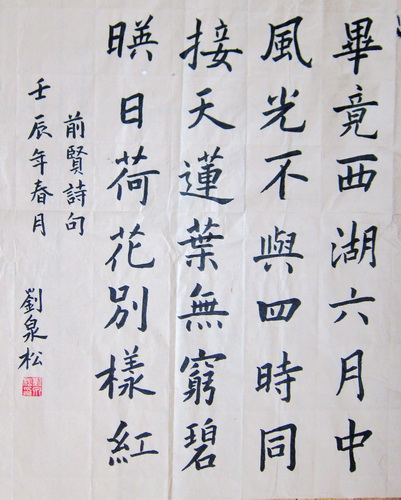 畢竟西湖六月中
風光不與四時同
接天蓮葉無窮碧
暎日荷花別樣紅
前賢詩句
壬辰年春月
劉泉松